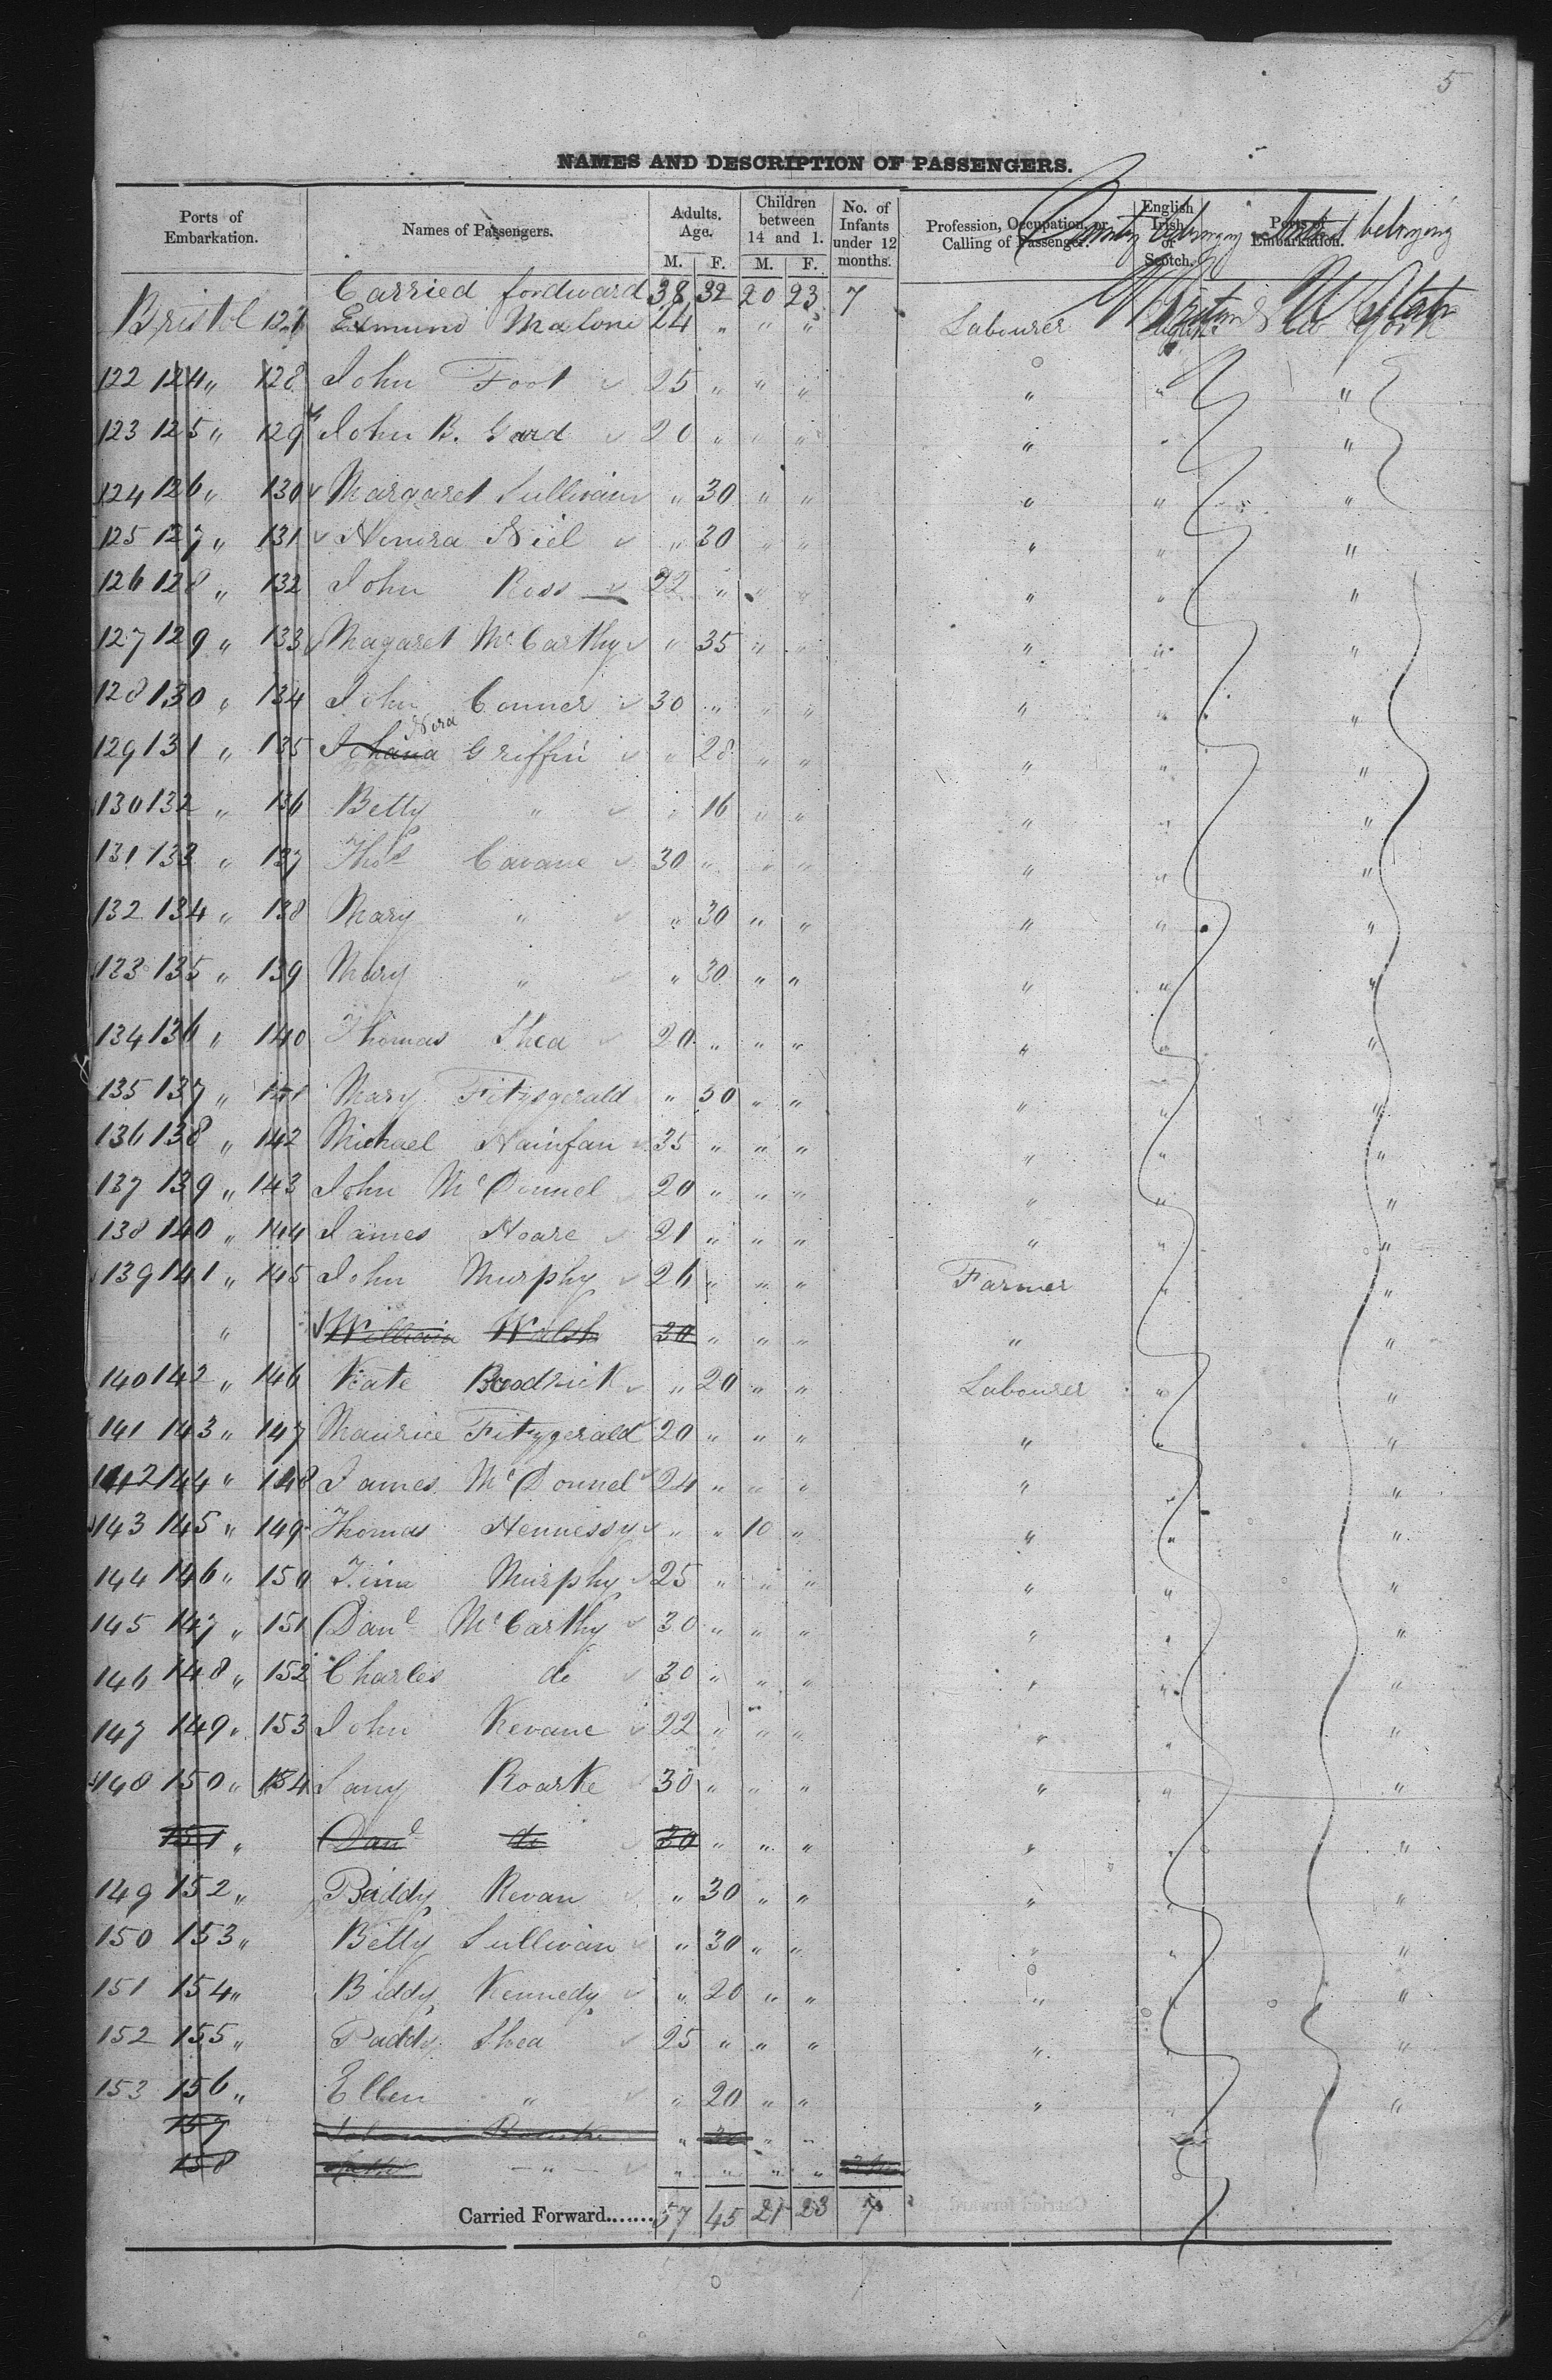 5
NAMES AND DESCRIPTION OF PASSENGERS.
Ports of Embarkation. Names of Passengers. Adults. Age. M. F. Children between 14 and 1. M. F. No. of Infants under 12 months. Profession, Occupation, or Calling of Passenger. English Irish or Scotch. Ports of Embarkation.
Country belonging belonging
Carried fordward 38 32 20 23 7
Bristol 121 Edmund Malone 24 " " " Labourer New York
122 124 " 128 John Foot 25 " " " " " "
123 125 " 129 John B. Gard 20 " " " " " "
124 126 " 130 Margaret Sullivan " 30 " " " " "
125 127 " 131 Honora Niel " 30 " " " " "
126 128 " 132 John Ross 22 " " " " " "
127 129 " 133 Magaret McCarthy " 35 " " " " "
128 130 " 134 John Conner 30 " " " " " "
129 131 " 135 Johana Nora Griffin " 28 " " " " "
130 132 " 136 Betty " " 16 " " " " "
131 133 " 137 Thos Cavane 30 " " " " " "
132 134 " 138 Mary " " 30 " " " " "
133 135 " 139 Mary " " 30 " " " " "
134 136 " 140 Thomas Shea 20 " " " " " "
135 137 " 141 Mary Fitzsgerald " 50 " " " " "
136 138 " 142 Michael Hainfan 35 " " " " " "
137 139 " 143 John McDonnel 20 " " " " " "
138 140 " 144 James Hoare 21 " " " " " "
139 141 " 145 John Murphy 26 " " " Farmer " "
" William Walsh 30 " " " " "
140 142 " 146 Kate Broodrick " 20 " " Labourer " "
141 143 " 147 Maurice Fitzygerald 20 " " " " " "
142 144 " 148 James McDonnel 24 " " " " " "
143 145 " 149 Thomas Hennessy " " 10 " " " "
144 146 " 150 Tim Murphy 25 " " " " " "
145 147 " 151 Danl McCarthy 30 " " " " " "
146 148 " 152 Charles do 30 " " " " " "
147 149 " 153 John Kevane 22 " " " " " "
148 150 " 154 Roarke 30 " " " " " "
151 " Danl do 30 " " " " " "
149 152 " Biddy Kevan " 30 " " " " "
150 153 " Betty Sullivan " 30 " " " " "
151 154 " Biddy Kennedy " 20 " " " " "
152 155 " Paddy Shea 25 " " " " " "
153 156 " Ellen " " 20 " " " " "
157 " " "
158 " " " " "
Carried Forward....... 57 45 21 23 7